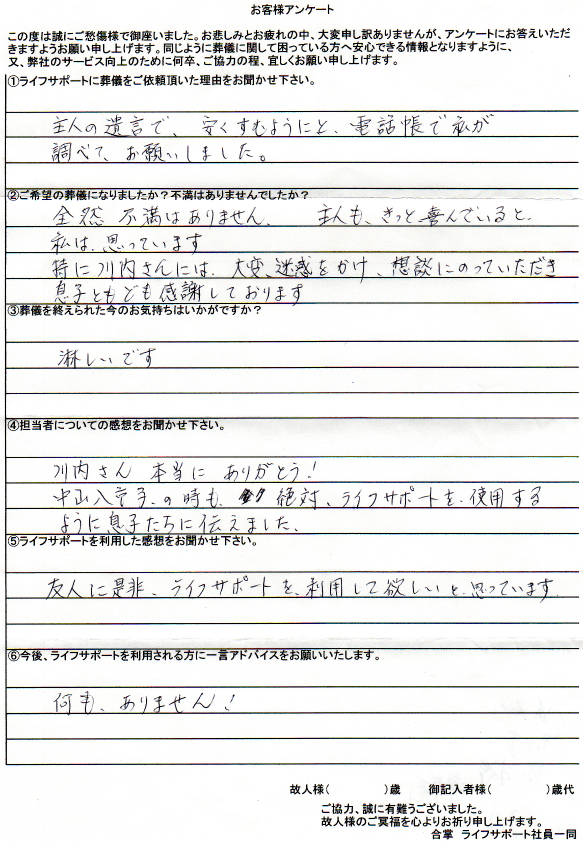 お客様アンケート
この度は誠にご愁傷様で御座いました。お悲しみとお疲れの中、大変申し訳ありませんが、アンケートにお答えいただ
きますようお願い申し上げます。同じように葬儀に関して困っている方へ安心できる情報となりますように、
又、弊社のサービス向上のために何卒、ご協力の程、宜しくお願い申し上げます。
①ライフサポートに葬儀をご依頼頂いた理由をお聞かせ下さい。
主人の遺言で、安くすむようにと、電話帳で私が
調べて、お願いしました。
②ご希望の葬儀になりましたか？不満はありませんでしたか？
全然 不満はありません、 主人も、きっと喜んでいると、
私は、思っています
特に川内さんには、大変、迷惑をかけ、想談にのっていただき
息子ともども感謝しております
③葬儀を終えられた今のお気持ちはいかがですか？
淋しいです
④担当者についての感想をお聞かせ下さい。
川内さん 本当に ありがとう！
の時も、絶対、ライフサポートを、使用する
ように息子たちに伝えました、
⑤ライフサポートを利用した感想をお聞かせ下さい。
友人に是非、ライフサポートを、利用して欲しいと、思っています
⑥今後、ライフサポートを利用される方に一言アドバイスをお願いいたします。
何も、ありません！
故人様( )歳 御記入者様( )歳代
ご協力、誠に有難うございました。
故人様のご冥福を心よりお祈り申し上げます。
合掌 ライフサポート社員一同